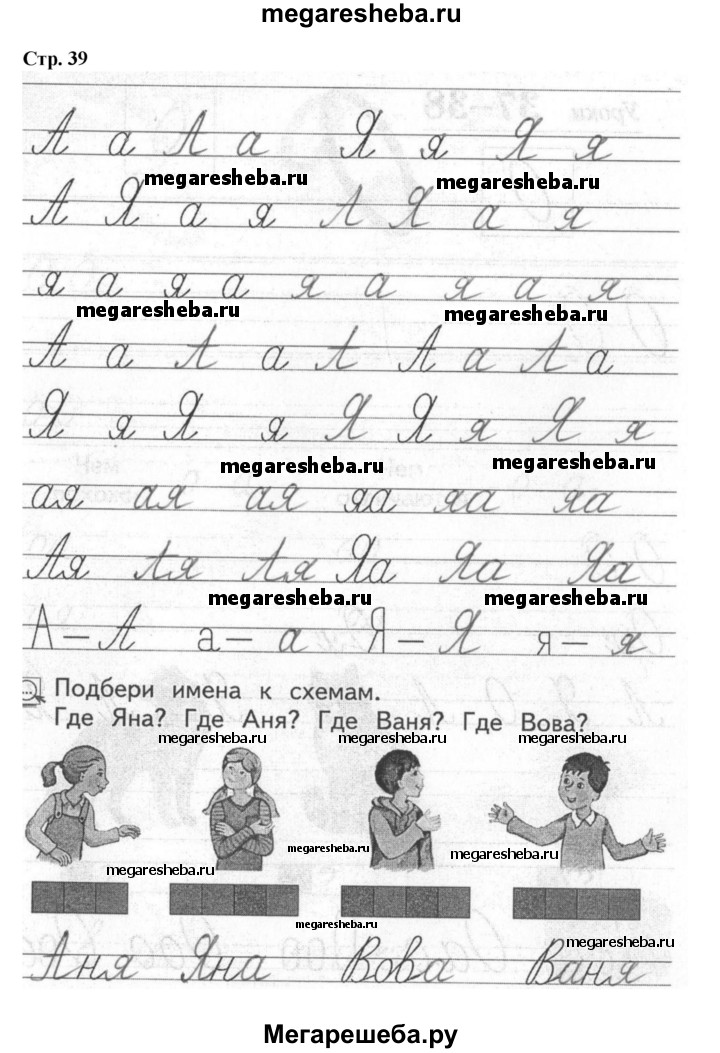 megaresheba.ru
Стр. 39
А а А а Я я Я я
megaresheba.ru megaresheba.ru
А Я а я А Я а я
я а я а я а я а я
megaresheba.ru megaresheba.ru
А а А а А А а А а
Я я Я я Я Я я Я я
megaresheba.ru megaresheba.ru
ая ая ая яа яа яа
Ая Ая Ая Яа Яа Яа
megaresheba.ru megaresheba.ru
А – А а – а Я – Я я – я
Подбери имена к схемам.
Где Яна? Где Аня? Где Ваня? Где Вова?
megaresheba.ru megaresheba.ru megaresheba.ru
megaresheba.ru megaresheba.ru
megaresheba.ru
megaresheba.ru
megaresheba.ru
Аня Яна Вова Ваня
Мегарешеба.ру